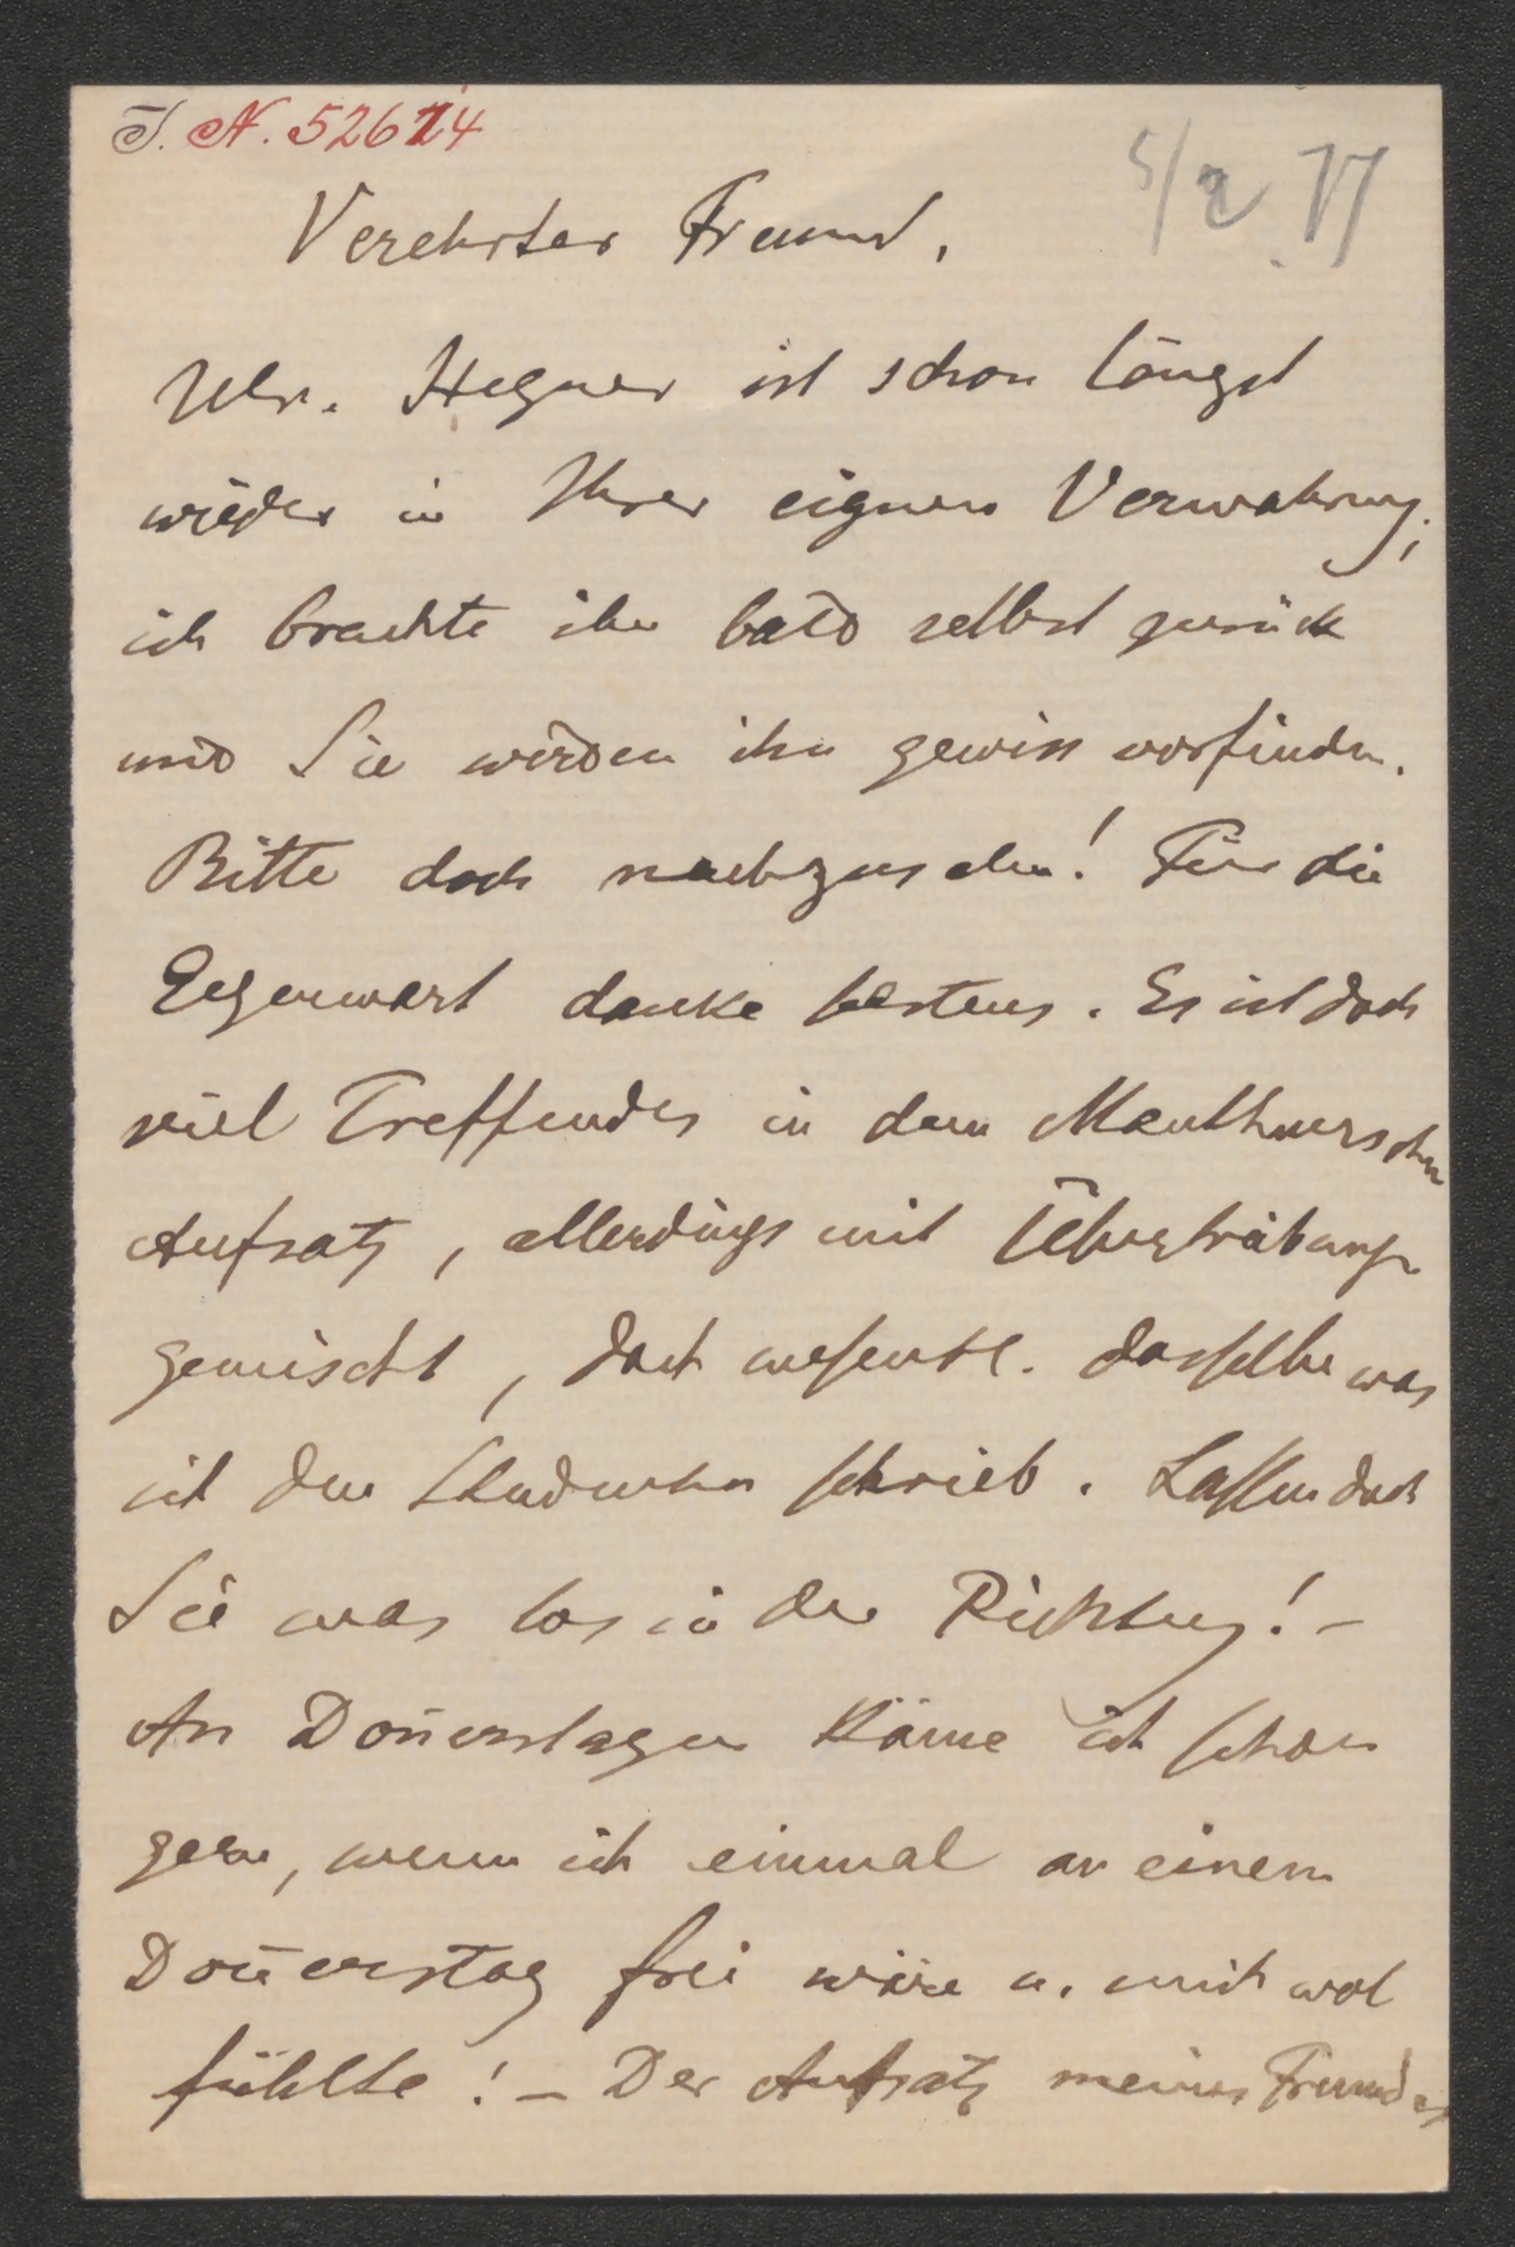 I. N. 52614
5/2. 77
Verehrter Freund,
Ulr. Hegner ist schon längst
wieder in Ihrer eignen Verwahrung;
ich brachte ihn bald selbst zurück
und Sie werden ihn gewiss vorfinden.
Bitte doch nachzusehen! Für die
Gegenwart danke bestens. Es ist doch
viel Treffendes in dem Mauthnerschen
Aufsatz, allerdings mit Übertreibungen
gemischt, doch wesentl. dasselbe was
ich den Studenten schrieb. Lassen doch
Sie was los in der Richtung! –
An Don̄erstagen käme ich schon
gern, wenn ich einmal an einem
Don̄erstag frei wäre u. mich wol
fühlte! – Der Aufsatz meines Freundes